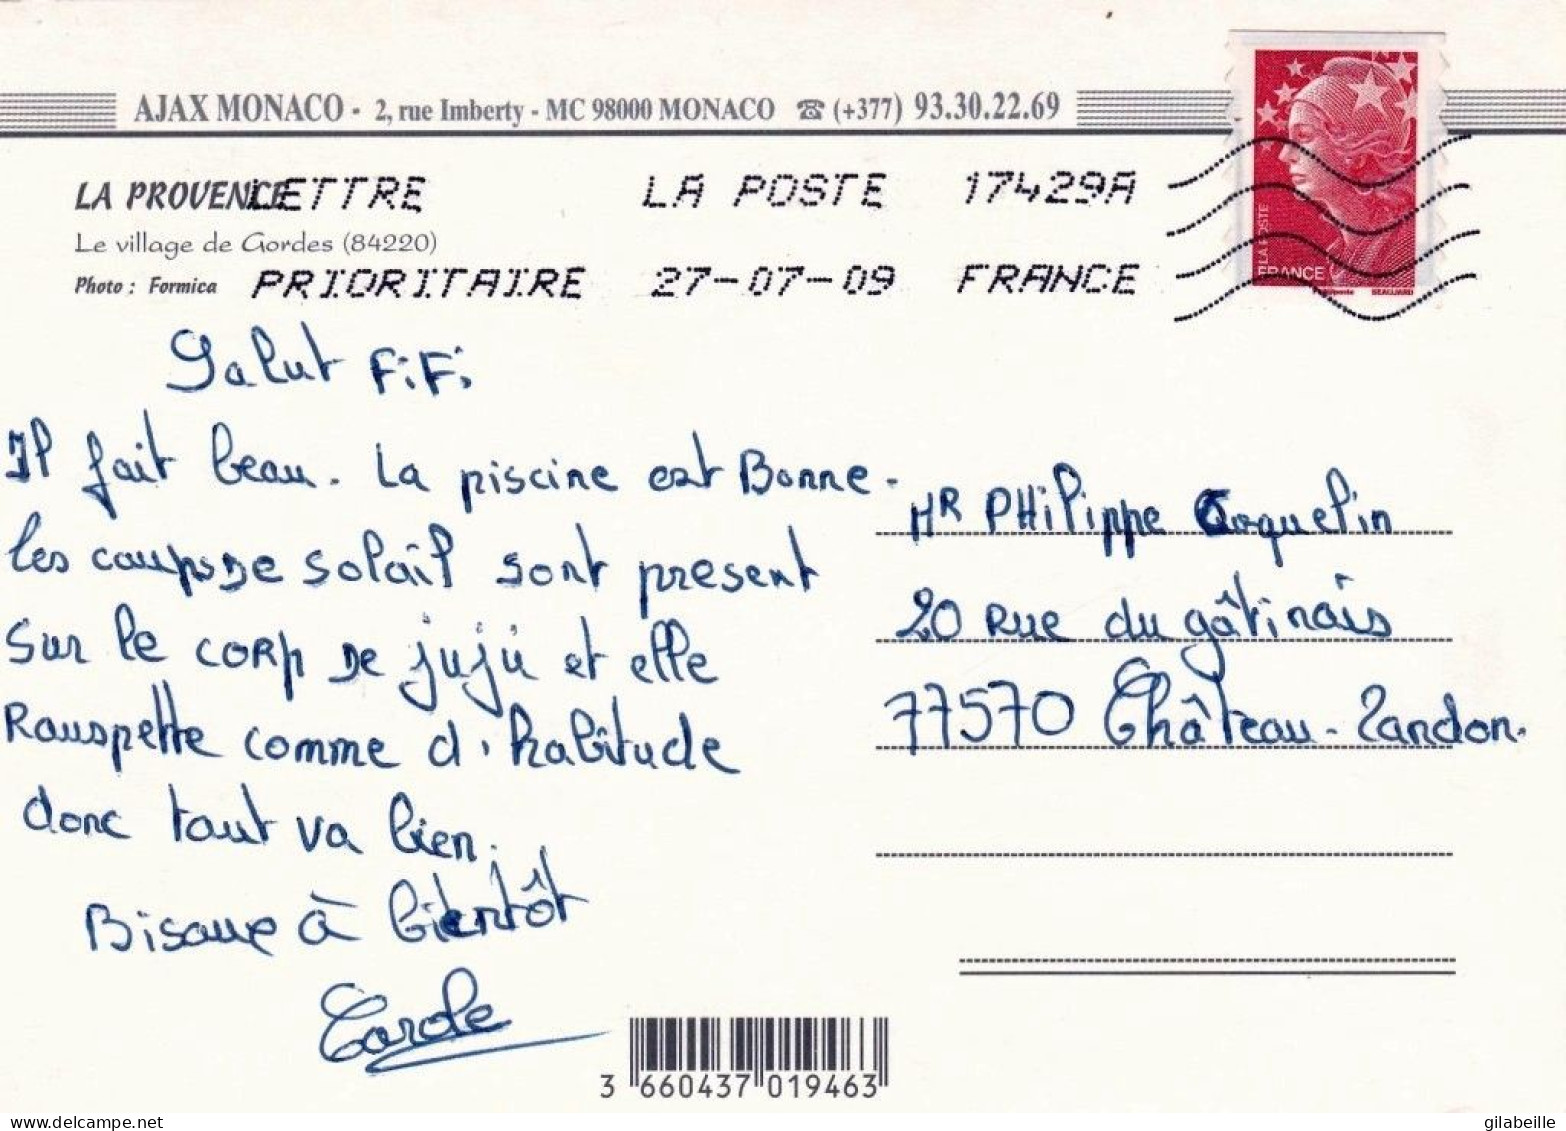 AJAX MONACO - 2, rue Imberty - MC 98000 MONACO ☎ (+377) 93.30.22.69
LA PROVENCE
LETTRE LA POSTE 17429A
Le village de Gordes (84220)
Photo : Formica
PRIORITAIRE 27-07-09 FRANCE
LA POSTE
FRANCE
BEAUJARD
Salut FiFi
Il fait beau. La piscine est Bonne.
les coups de soleil sont present
sur le corp de juju et elle
Rouspette comme d'habitude
donc tout va bien.
Bisoux à bientôt
Carole
MR PHilippe Coquelin
20 Rue du gâtinais
77570 Château-Landon.
3 660437 019463
gilabeille